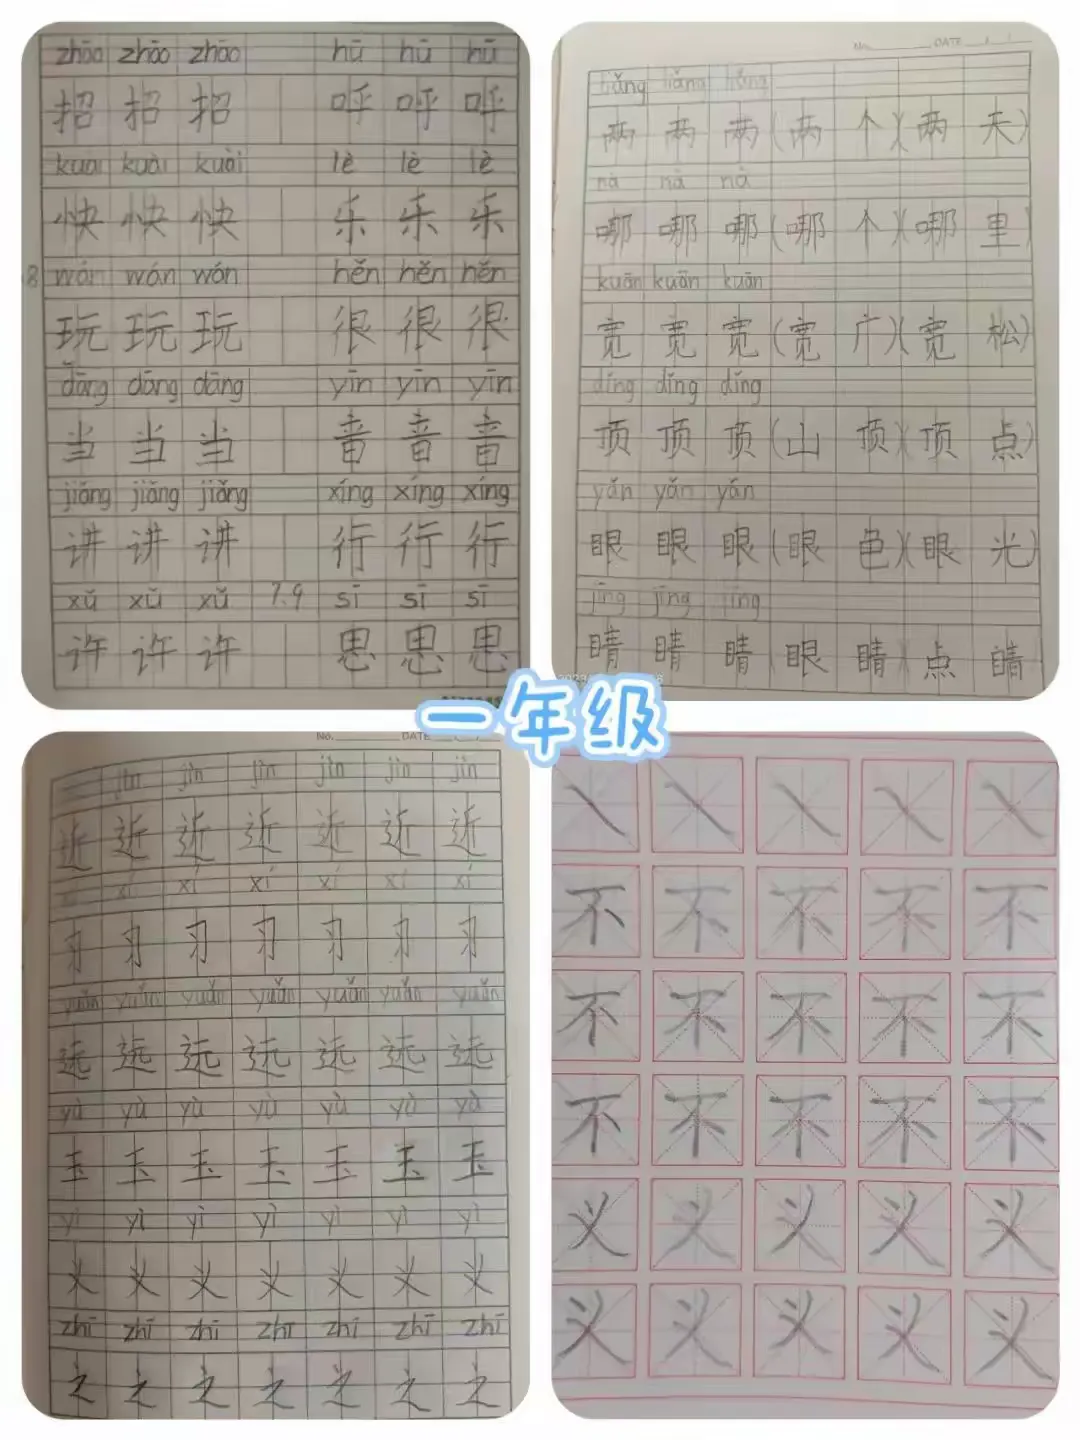 zhāo zhāo zhāo hū hū hū
招 招 招 呼 呼 呼
kuài kuài kuài lè lè lè
快 快 快 乐 乐 乐
8 wán wán wán hěn hěn hěn
玩 玩 玩 很 很 很
dāng dāng dāng yīn yīn yīn
当 当 当 音 音 音
jiǎng jiǎng jiǎng xíng xíng xíng
讲 讲 讲 行 行 行
xǔ xǔ xǔ 7.9 sī sī sī
许 许 许 思 思 思
No. DATE
liǎng liǎng liǎng
两 两 两 (两 个)(两 天)
nǎ nǎ nǎ
哪 哪 哪 (哪 个)(哪 里)
kuān kuān kuān
宽 宽 宽 (宽 广)(宽 松)
dǐng dǐng dǐng
顶 顶 顶 (山 顶)(顶 点)
yǎn yǎn yǎn
眼 眼 眼 (眼 色)(眼 光)
jīng jīng jīng
睛 睛 睛 眼 睛)(点 睛
一年级
No. DATE
jìn jìn jìn jìn jìn jìn
近 近 近 近 近 近 近
xí xí xí xí xí xí
习 习 习 习 习 习 习
yuǎn yuǎn yuǎn yuǎn yuǎn yuǎn yuǎn
远 远 远 远 远 远 远
yù yù yù yù yù yù yù
玉 玉 玉 玉 玉 玉 玉
yì yì yì yì yì yì yì
义 义 义 义 义 义 义
zhī zhī zhī zhī zhī zhī zhī
之 之 之 之 之 之 之
㇏ ㇏ ㇏ ㇏ ㇏
不 不 不 不 不
不 不 不 不 不
不 不 不 不 不
义 义 义 义 义
义 义 义 义 义